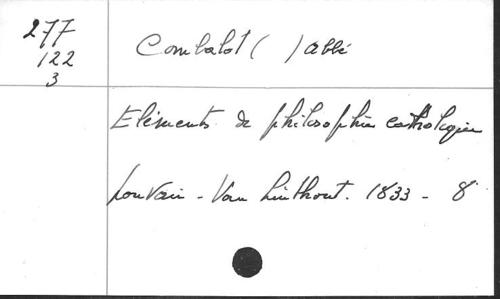 277
122
3
Combalot ( ) abbé
Eléments de philosophie catholique
Louvain - Van Linthout. 1833 - 8°